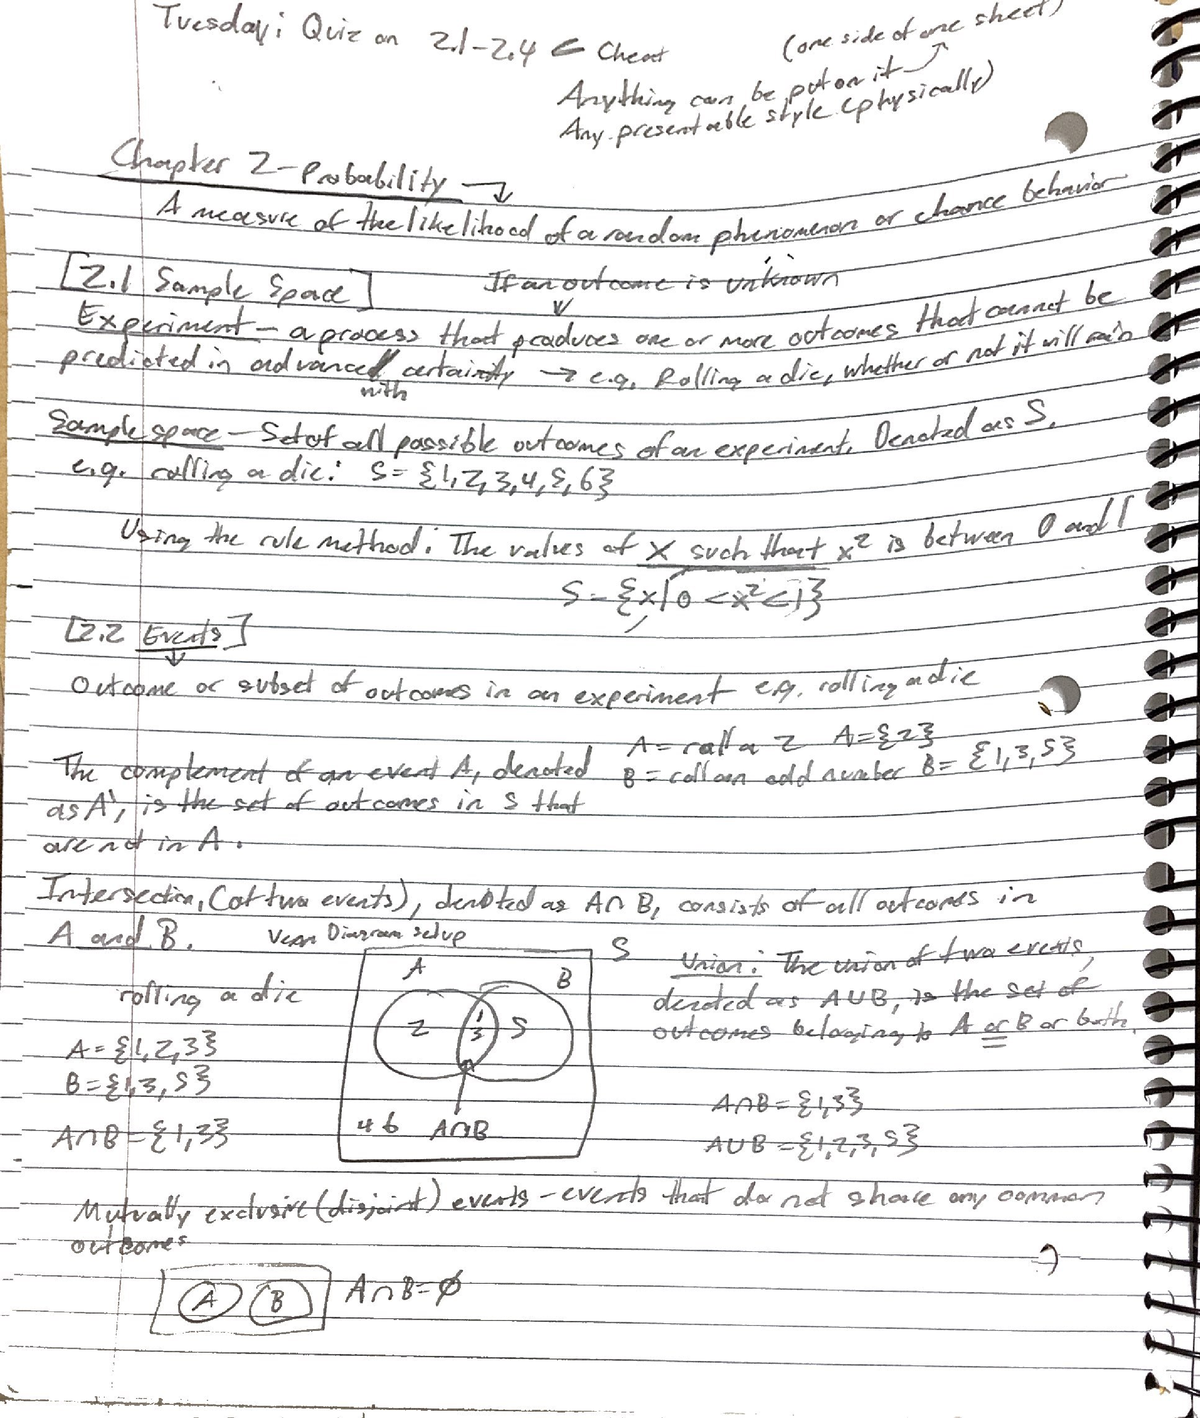 Tuesday: Quiz on 2.1-2.4 ← Cheat (one side of one sheet)
Anything can be put on it
Any presentable style (physically)
Chapter 2 - Probability →
A measure of the likelihood of a random phenomenon or chance behavior
[2.1 Sample Space] If an outcome is unknown
Experiment - a process that produces one or more outcomes that cannot be
predicted in advance with certainty → e.g. Rolling a die, whether or not it will rain
Sample space - Set of all possible outcomes of an experiment. Denoted as S.
e.g. rolling a die: S = {1,2,3,4,5,6}
Using the rule method: The values of x such that x² is between 0 and 1
S = {x|0 < x² < 1}
[2.2 Events]
Outcome or subset of outcomes in an experiment e.g. rolling a die
A = roll a 2 A = {2}
B = roll an odd number B = {1,3,5}
The complement of an event A, denoted
as A', is the set of outcomes in S that
are not in A.
Intersection, (of two events), denoted as A∩B, consists of all outcomes in
A and B.
Venn Diagram setup
rolling a die
A = {1,2,3}
B = {1,3,5}
A∩B = {1,3}
S
A B
2 1 3 5
4 6 A∩B
Union: The union of two events,
denoted as A∪B, is the set of
outcomes belonging to A or B or both.
A∩B = {1,3}
A∪B = {1,2,3,5}
Mutually exclusive (disjoint) events - events that do not share any common
outcomes
A B A∩B = ∅